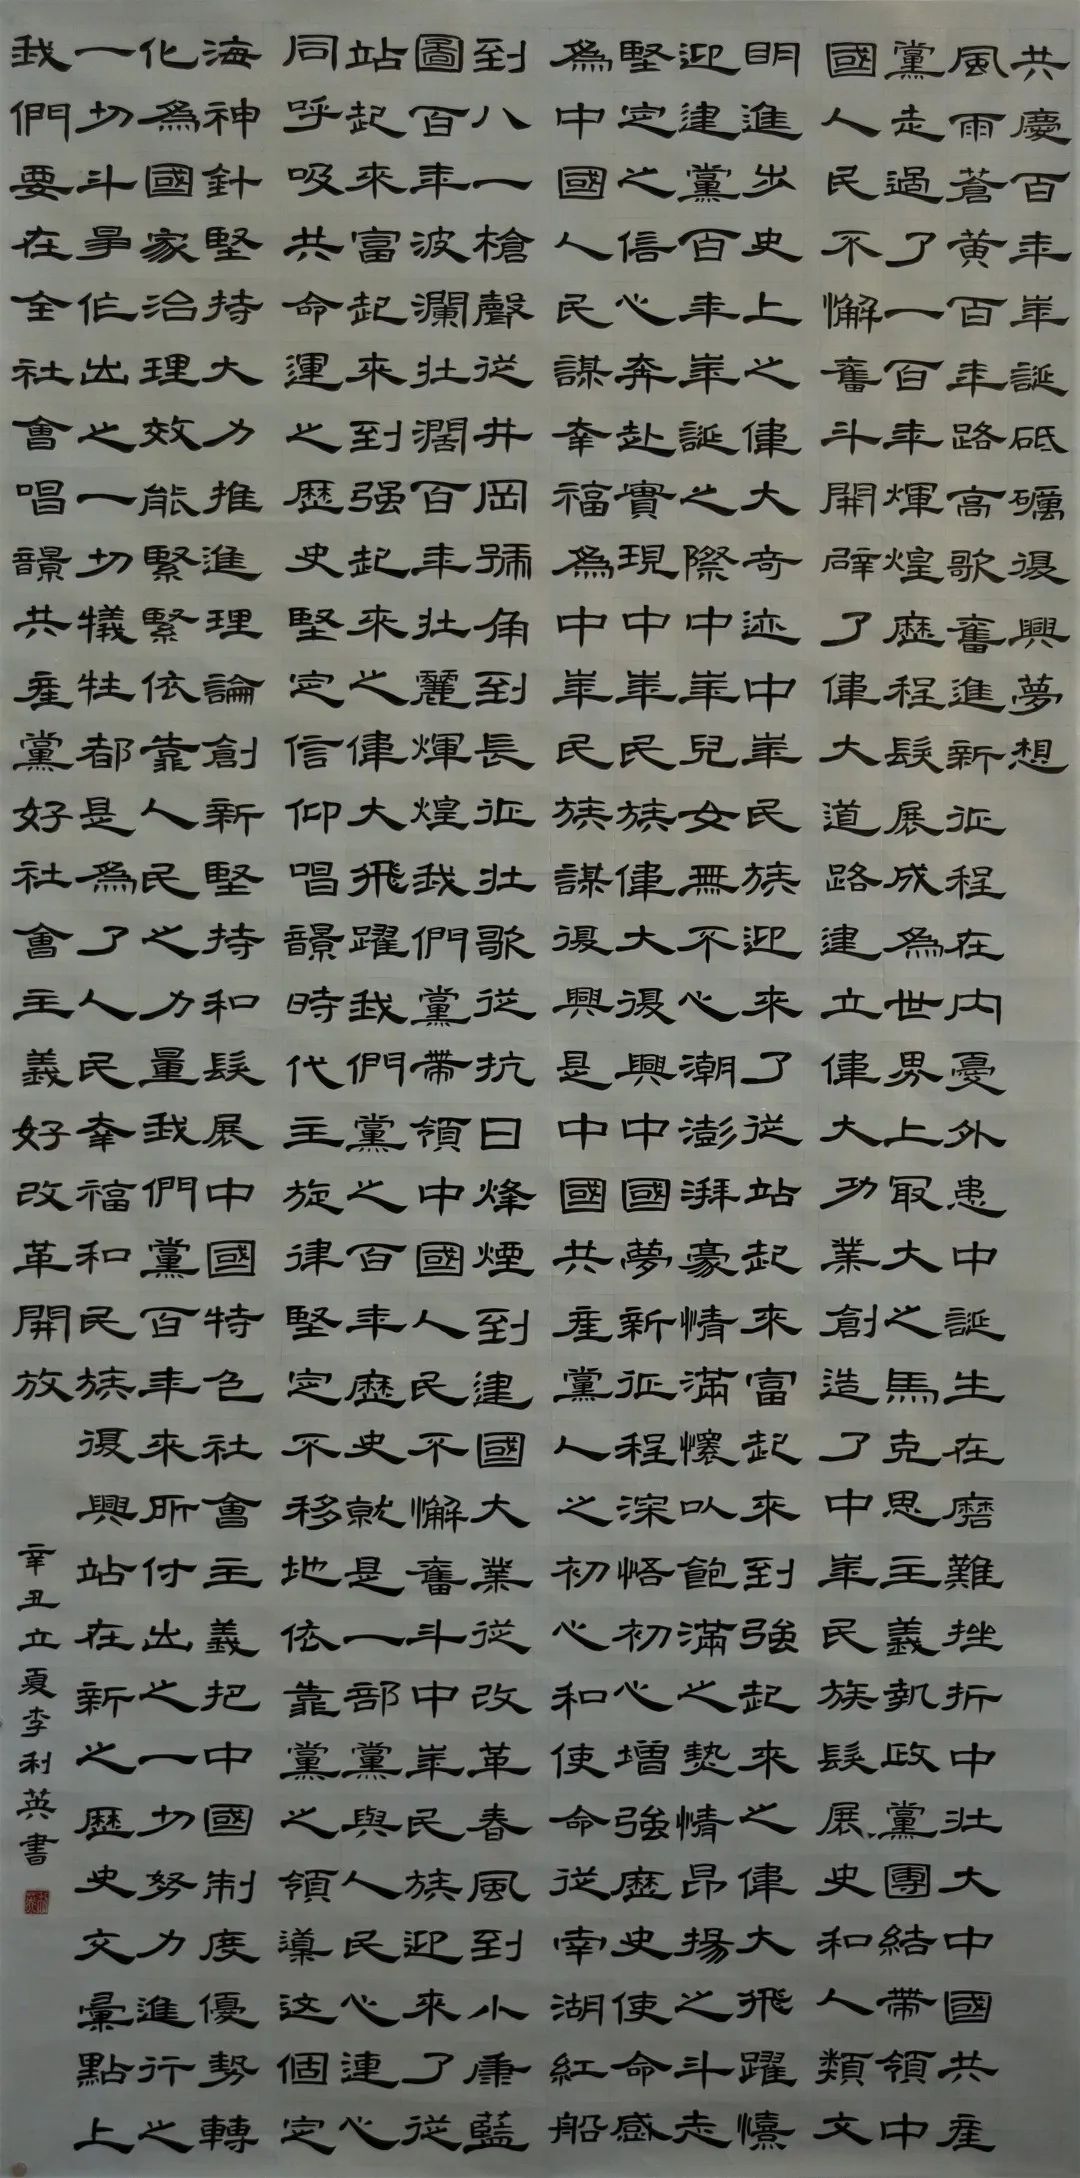 共慶百年華誕砥礪復興夢想
風雨蒼黃百年路高歌奮進新征程在內憂外患中誕生在磨難挫折中壯大中國共產
黨走過了一百年輝煌歷程發展成為世界上最大之馬克思主義執政黨團結帶領中
國人民不懈奮斗開辟了偉大道路建立偉大功業創造了中華民族發展史和人類文
明進步史上之偉大奇迹中華民族迎來了從站起來富起來到強起來之偉大飛躍憙
迎建黨百年華誕之際中華兒女無不心潮澎湃豪情滿懷以飽滿之熱情昂揚之斗志
堅定之信心奔赴實現中華民族偉大復興中國夢新征程深悟初心增強歷史使命感
為中國人民謀幸福為中華民族謀復興是中國共產黨人之初心和使命從南湖紅船
到八一槍聲從井岡號角到長征壯歌從抗日烽煙到建國大業從改革春風到小康藍
圖百年波瀾壯闊百年壯麗輝煌我們黨帶領中國人民不懈奮斗中華民族迎來了從
站起來富起來到强起來之偉大飛躍我們黨之百年歷史就是一部黨與人民心連心
同呼吸共命運之歷史堅定信仰唱響時代主旋律堅定不移地依靠黨之領導这個定
海神針堅持大力推進理論創新堅持和發展中國特色社會主義把中國制度優勢轉
化為國家治理效能緊緊依靠人民之力量我們黨百年來所付出之一切努力進行之
一切斗爭作出之一切犧牲都是為了人民幸福和民族復興站在新之歷史交彙點上
我們要在全社會唱響共產黨好社會主義好改革開放
辛丑立夏李利英書